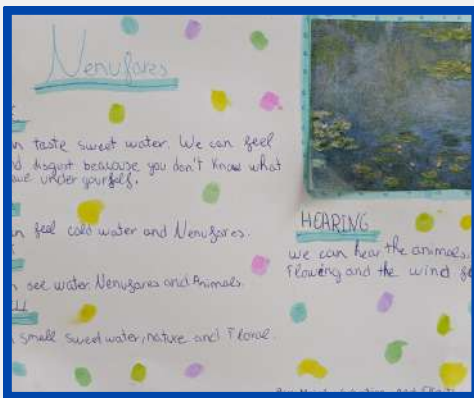 Nenufares
n taste sweet water. We can feel
nd disgust because you don't know what
under yourself.
n feel cold water and Nenufares.
see water. Nenufares and Animals
smell sweet water, nature and Floral.
HEARING
we can hear the animals,
Flowing and the wind